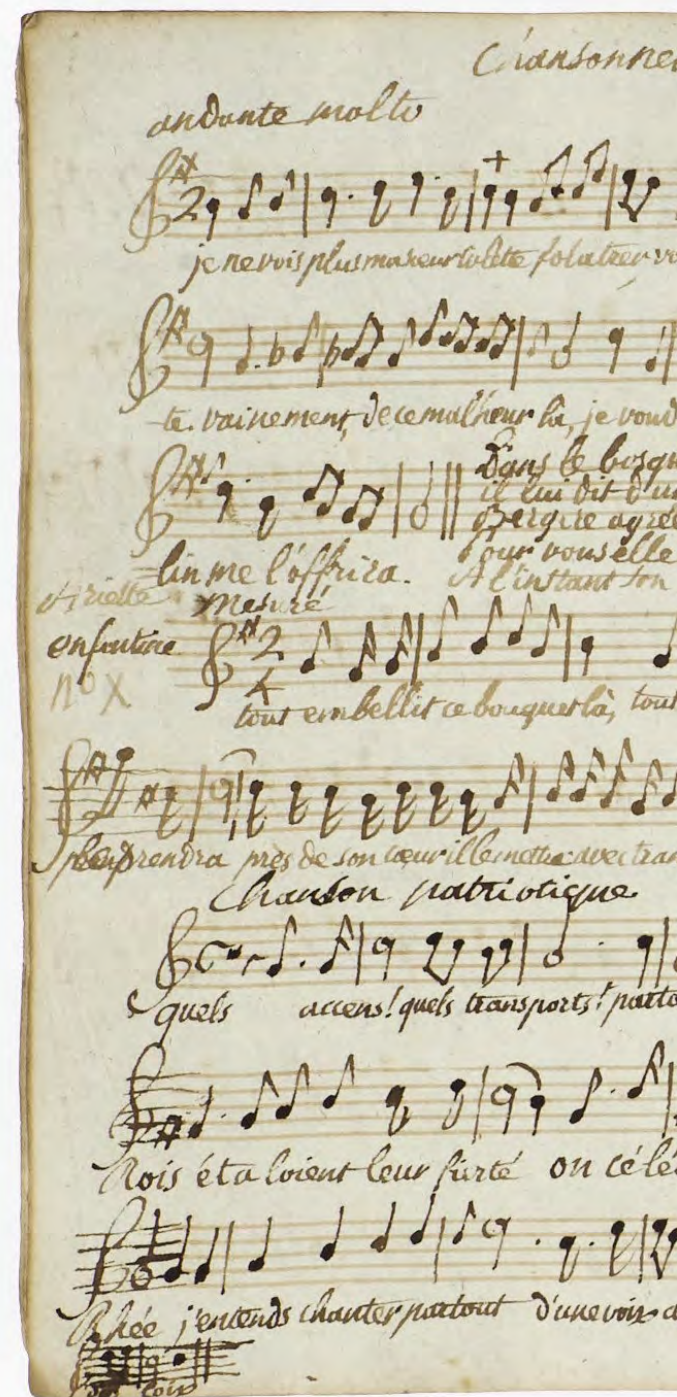 Chansonne
andante molto
2
je ne vois plus ma seur Colette folatrer v
te. vainement, de ce malheur là, je voud
Dans le bosqu
il lui dit d'un
Bergere agré
Pour vous elle
A l'instant son
lin me l'offrira.
Ariette enfantine n° X
mesuré
2 4
tout embellit ce bouquet là, tout
prendra près de son cœur il le mettra avec tran
Chanson patriotique
quels accens! quels transports! parto
Rois étaloient leur fierté on célé
Rhée j'entends chanter partout d'une voix a